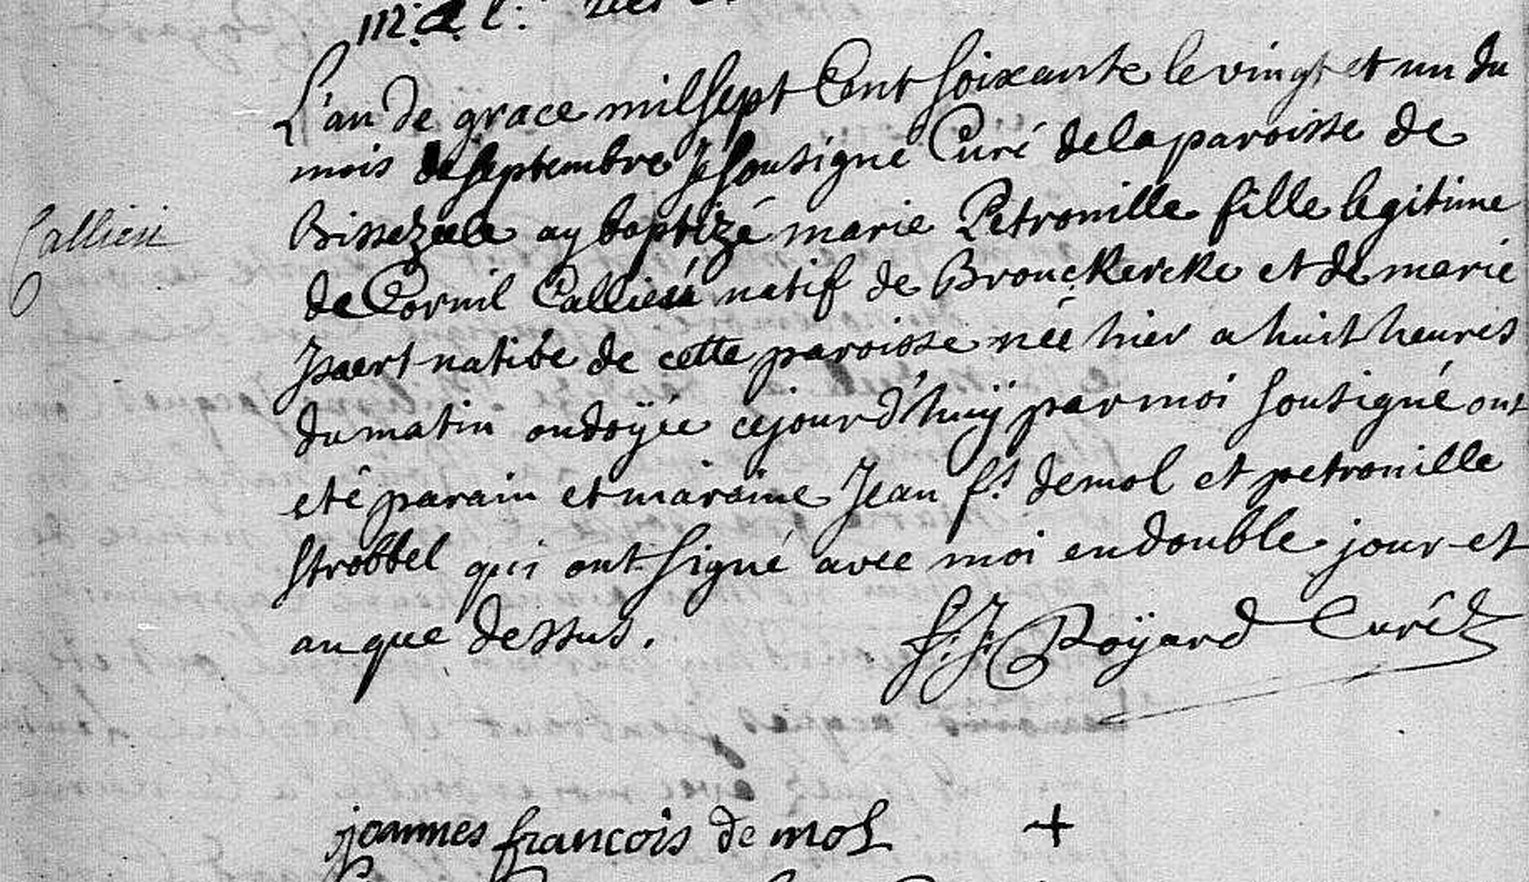 L'an de grace mil sept Cent soixante le vingt et un du
mois de septembre je soutsigné Curé de la paroisse de
Bissezeele ay baptizé marie Petronille fille legitime
Callieu
de Cornil Callieu natif de Brouckercke et de marie
Isaert native de cette paroisse née hier a huit heures
du matin ondoÿée cejourd'huÿ par moi soutsigné ont
eté parain et maraine Jean f.s demol et petronille
strobbel qui ont signé avec moi en double jour et
an que dessus.
f: J: Roÿard Curé
joannes francois de mol +